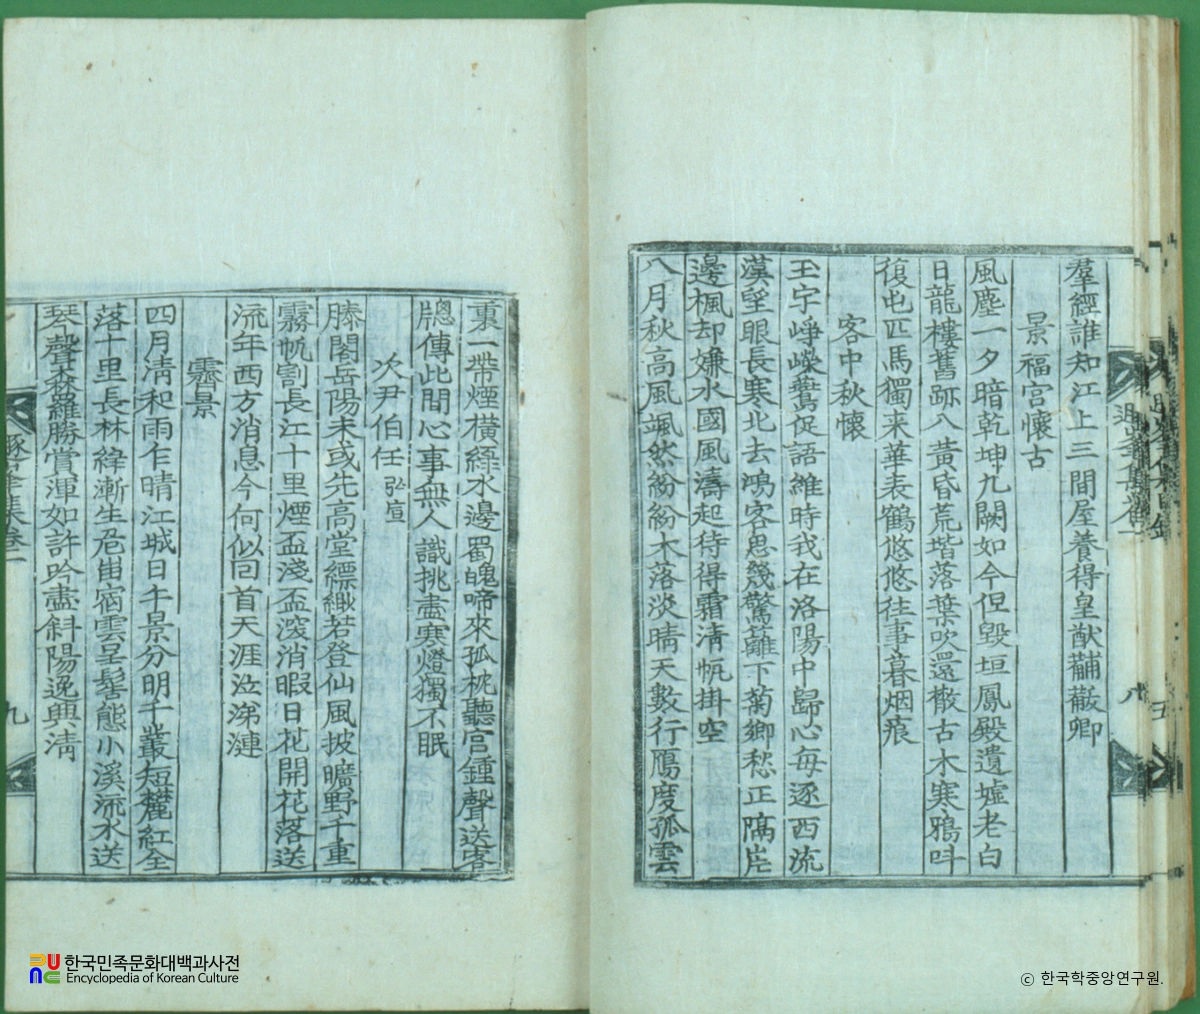 羣經誰知江上三間屋養得皇猷黼黻卿
景福宮懷古
風塵一夕暗乾坤九闕如今但毀垣鳳殿遺墟老白
日龍樓舊跡八黃昏荒堦落葉吹還散古木寒鴉叫
復屯匹馬獨来華表鶴悠悠往事暮烟痕
客中秋懷
玉宇崢嶸蛩促語維時我在洛陽中歸心每逐西流
漢望眼長寒北去鴻客思幾驚籬下菊鄉愁正隔岸
邊楓却嫌水國風濤起待得霜清帆掛空
八月秋高風颯然紛紛木落淡晴天數行鴈度孤雲
八
重一帶煙橫綠水邊蜀魄啼來孤枕聽宮鍾聲送客
牕傳此間心事無人識挑盡寒燈獨不眠
次尹伯任弘宣
滕閣岳陽未或先高堂縹緲若登仙風披曠野千重
霧帆割長江十里煙盃淺盃深消暇日花開花落送
流年西方消息今何似回首天涯泣涕漣
霽景
四月清和雨乍晴江城日午景分明千叢短麓紅全
落十里長林綠漸生危岫宿雲呈髻態小溪流水送
琴聲森羅勝賞渾如許吟盡斜陽逸興淸
九
한국민족문화대백과사전
Encyclopedia of Korean Culture
ⓒ 한국학중앙연구원.